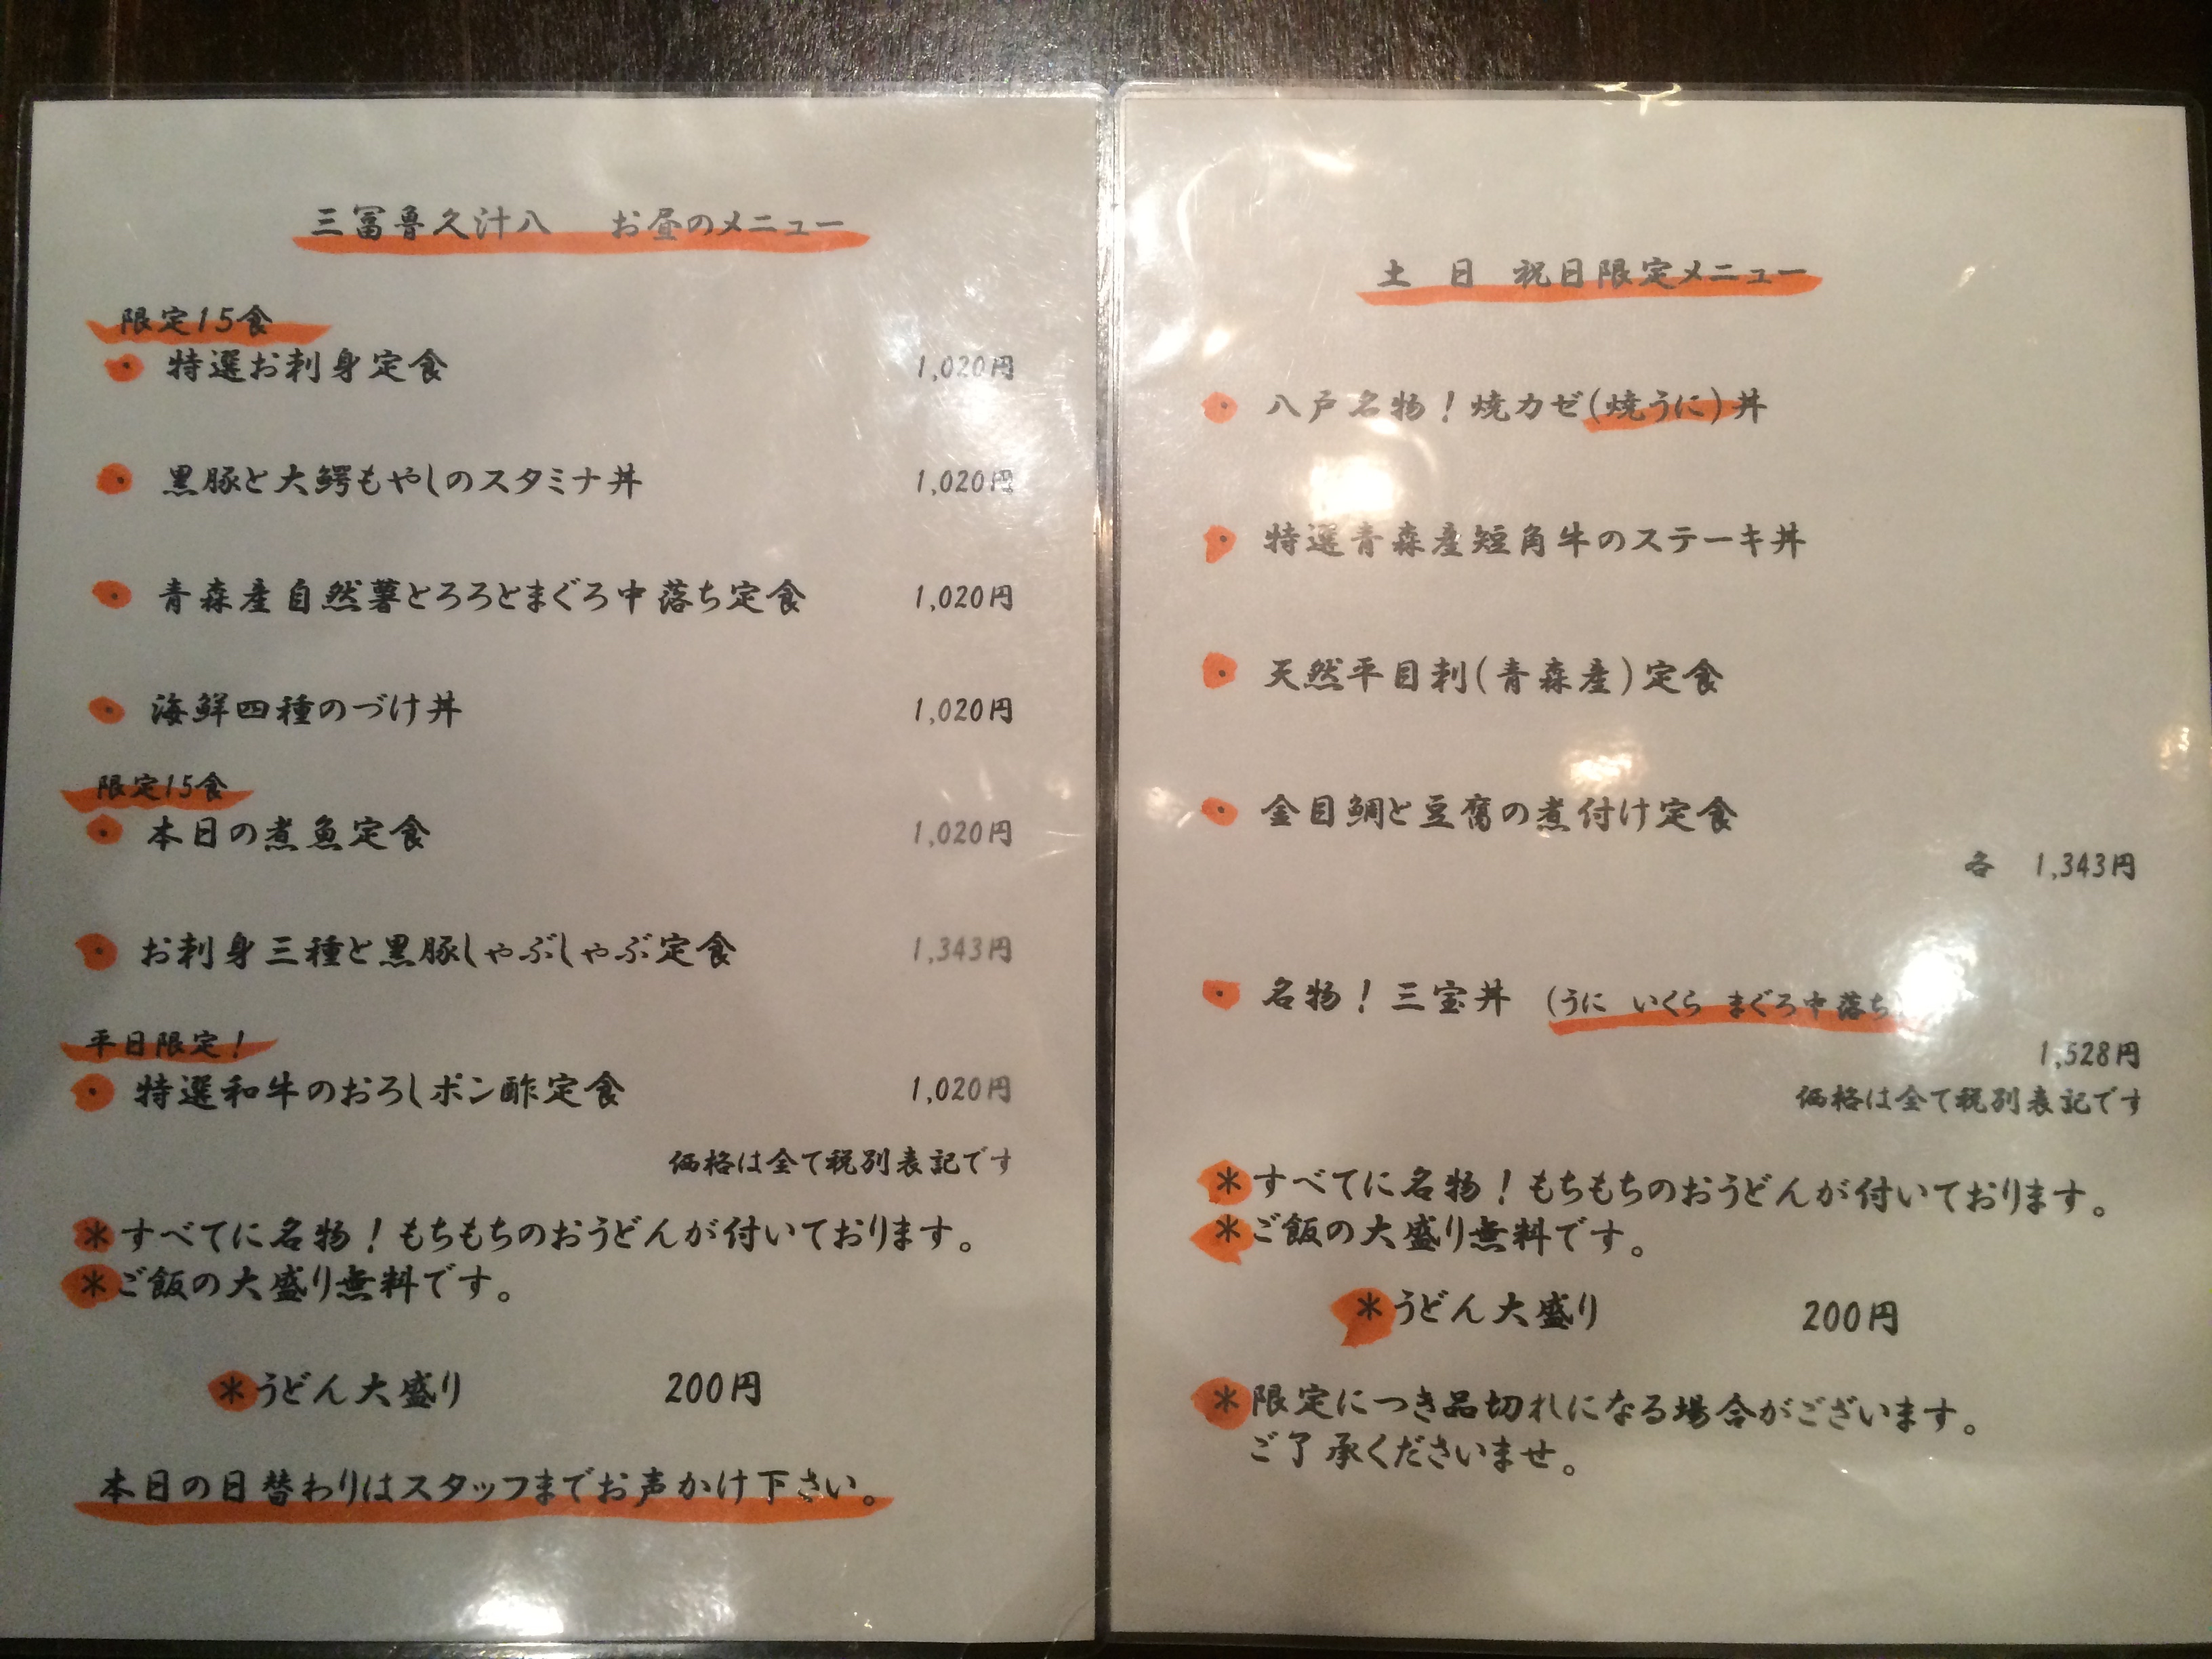 三冨魯久汁八 お昼のメニュー
限定15食
・特選お刺身定食 1,020円
・黒豚と大鰐もやしのスタミナ丼 1,020円
・青森産自然薯とろろとまぐろ中落ち定食 1,020円
・海鮮四種のづけ丼 1,020円
限定15食
・本日の煮魚定食 1,020円
・お刺身三種と黒豚しゃぶしゃぶ定食 1,343円
平日限定!
・特選和牛のおろしポン酢定食 1,020円
価格は全て税別表記です
*すべてに名物!もちもちのおうどんが付いております。
*ご飯の大盛り無料です。
*うどん大盛り 200円
本日の日替わりはスタッフまでお声かけ下さい。
土 日 祝日限定メニュー
・八戸名物!焼カゼ(焼うに)丼
・特選青森産短角牛のステーキ丼
・天然平目刺(青森産)定食
・金目鯛と豆腐の煮付け定食
各 1,343円
・名物!三宝丼 (うに いくら まぐろ中落ち)
1,528円
価格は全て税別表記です
*すべてに名物!もちもちのおうどんが付いております。
*ご飯の大盛り無料です。
*うどん大盛り 200円
*限定につき品切れになる場合がございます。
ご了承くださいませ。